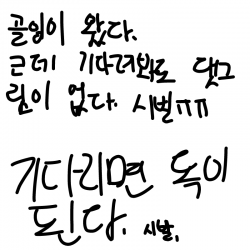 골잉이 왔다.
근데 기다려봐도 댓그
림이 없다. 시벌ㅠㅠ
기다리면 독이
된다. 시발.